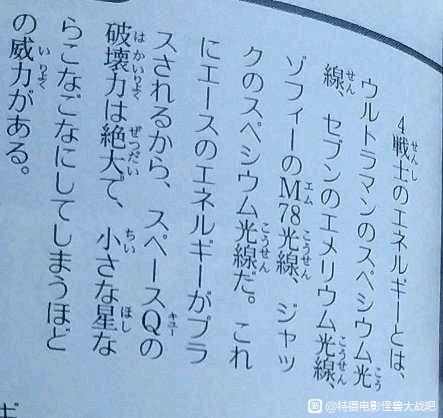 4戦士のエネルギーとは、
ウルトラマンのスペシウム光
線、セブンのエメリウム光線、
ゾフィーのM78光線、ジャッ
クのスペシウム光線だ。これ
にエースのエネルギーがプラ
スされるから、スペースQの
破壊力は絶大で、小さな星な
らこなごなにしてしまうほど
の威力がある。
ギ
@特摄电影怪兽大战吧